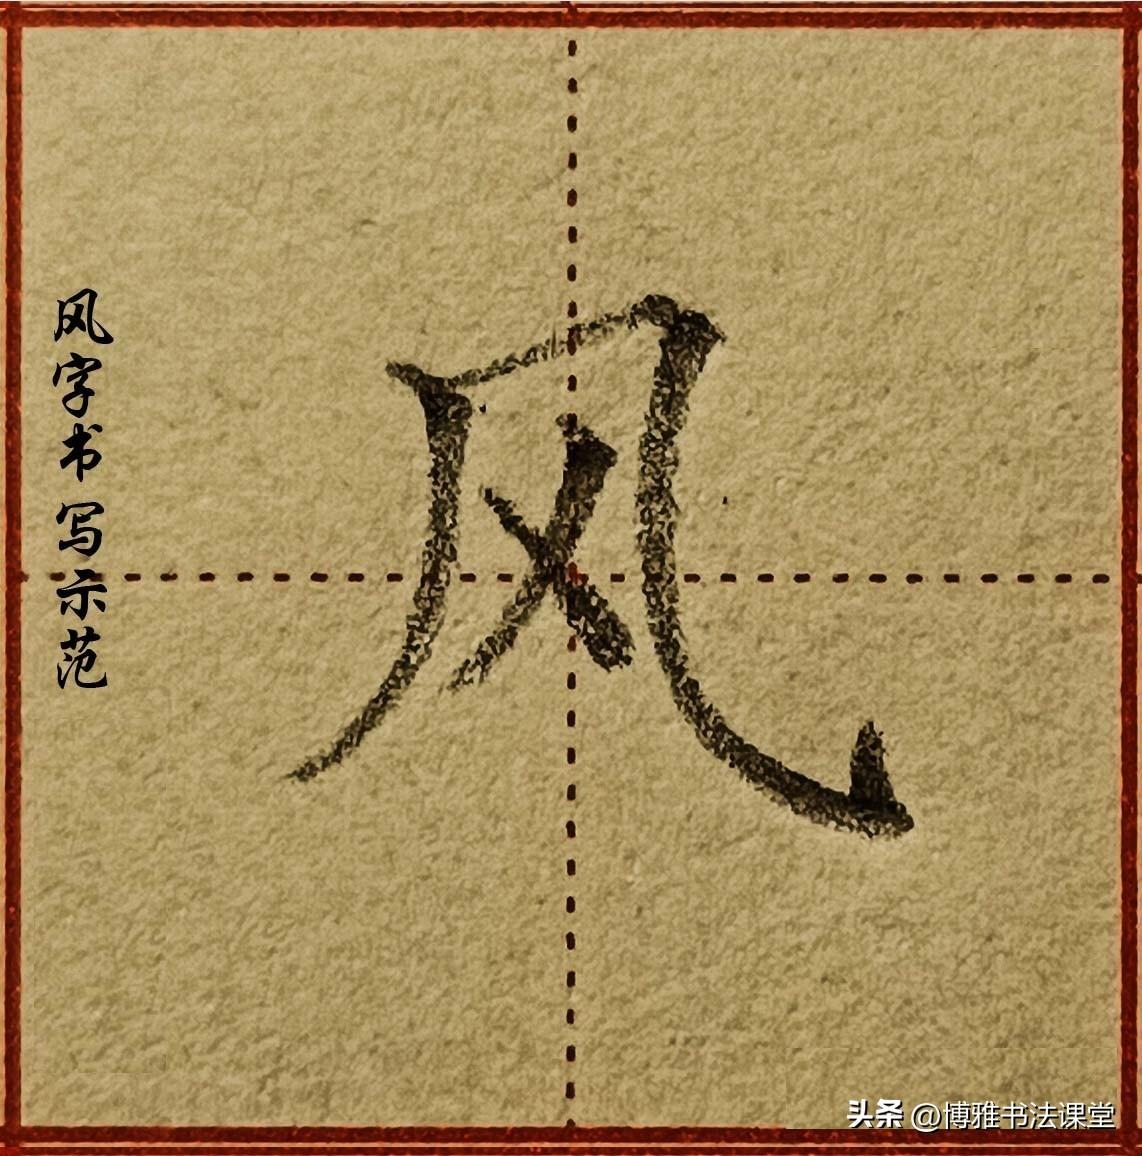 风字书写示范
风
头条 @博雅书法课堂